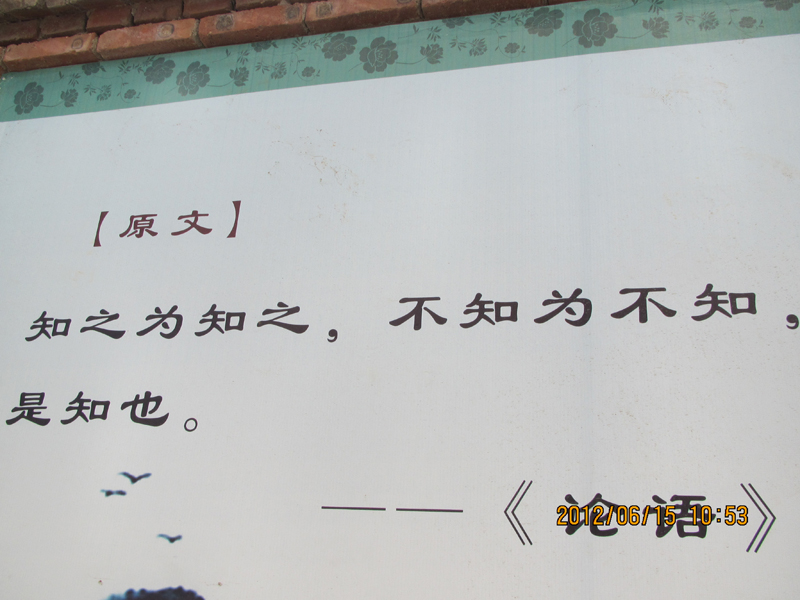 【原文】
知之为知之，不知为不知，
是知也。
——《论语》
2012/06/15 10:53